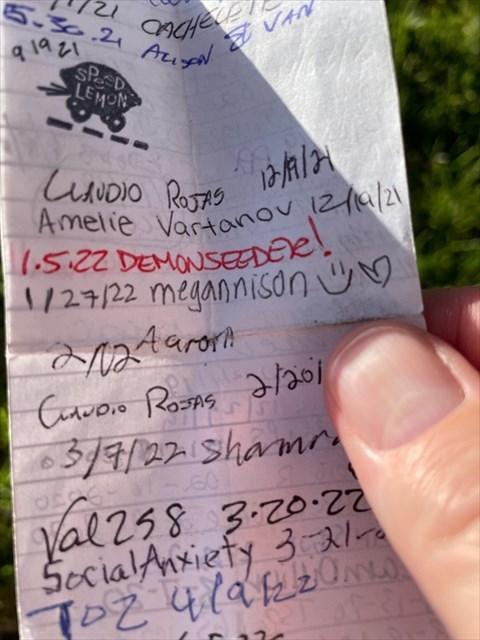 5.30.21
ALISON & VAN
9/9/21
SPEED
LEMON
CLAUDIO ROJAS 12/19/21
Amelie Vartanov 12/19/21
1.5.22 DEMONSEEDER!
1/27/22 megannison
Aaron
CLAUDIO ROJAS 2/20/
3/7/22 Shamr
Val258 3.20.22
SocialAnxiety 3-21-
TOZ 4/9/22